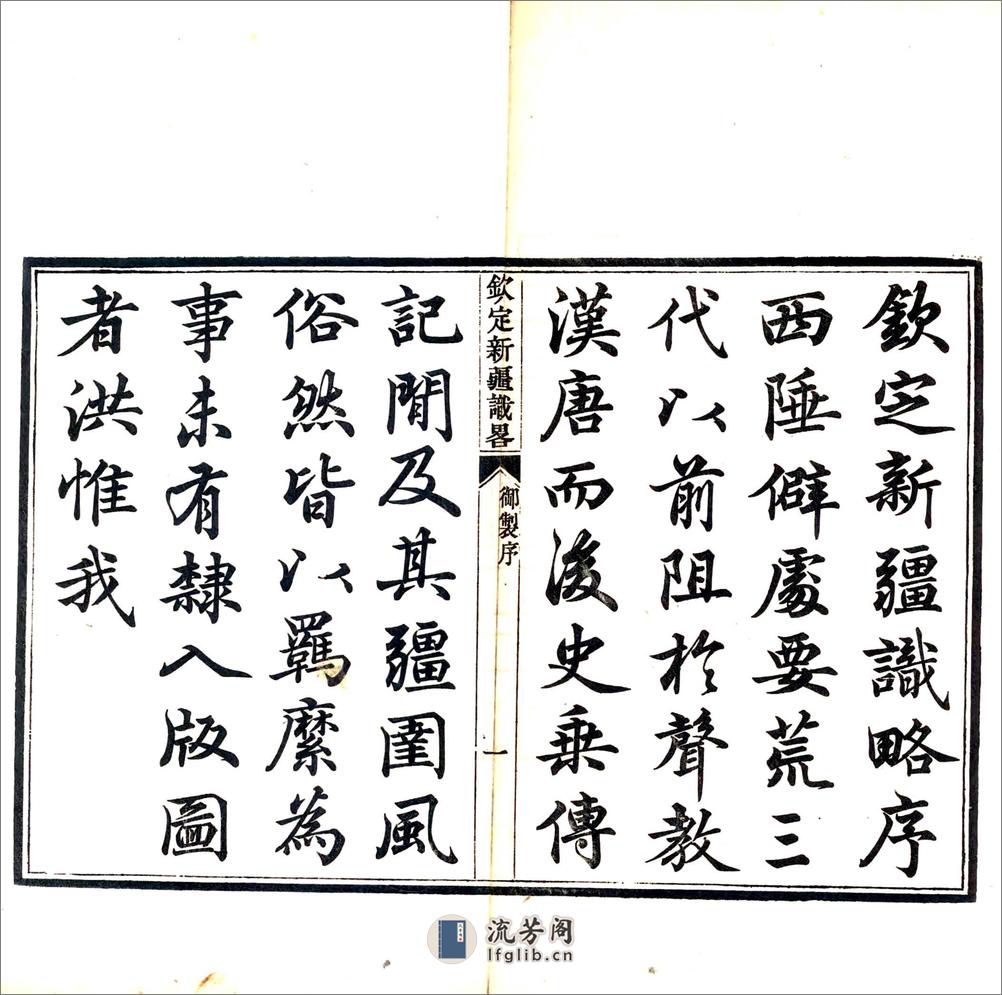 欽定新疆識略序
西陲僻處要荒三
代以前阻於聲教
漢唐而後史乘傳
欽定新疆識畧
御製序
一
記聞及其疆圉風
俗然皆以羈縻為
事未有隸入版圖
者洪惟我
流芳阁
lfglib.cn